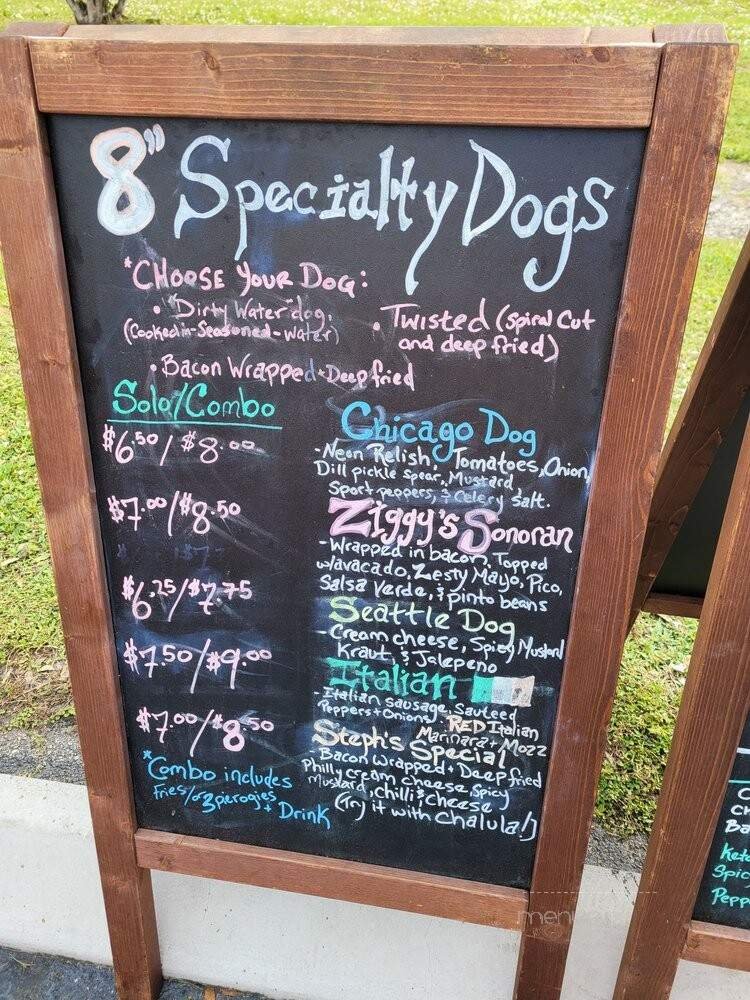 8" Specialty Dogs
*Choose Your Dog:
• "Dirty Water" dog,
(Cooked-in-Seasoned-Water)
• Twisted (Spiral Cut
and deep fried)
• Bacon Wrapped + Deep fried
Solo/Combo
$6.50 / $8.00
Chicago Dog
- Neon Relish, Tomatoes, Onion,
Dill pickle spear, Mustard,
Sport peppers, & Celery Salt.
$7.00/$8.50
Ziggy's Sonoran
- Wrapped in bacon, Topped
w/avacado, Zesty Mayo, Pico,
Salsa Verde, & pinto beans
$6.25/$7.75
Seattle Dog
- Cream cheese, Spicy Mustard
Kraut, & Jalepeno
$7.50/$9.00
Italian
- Italian sausage, Sauteed
Peppers + Onions, RED Italian
Marinara + Mozz
$7.00/$8.50
Steph's Special
- Bacon Wrapped + Deep fried
Philly cream cheese, Spicy
Mustard, chilli & cheese
(Try it with Chalula!)
*Combo includes
Fries/or 3 pierogies
+ Drink
Ba
Keto
Spic
Pepp